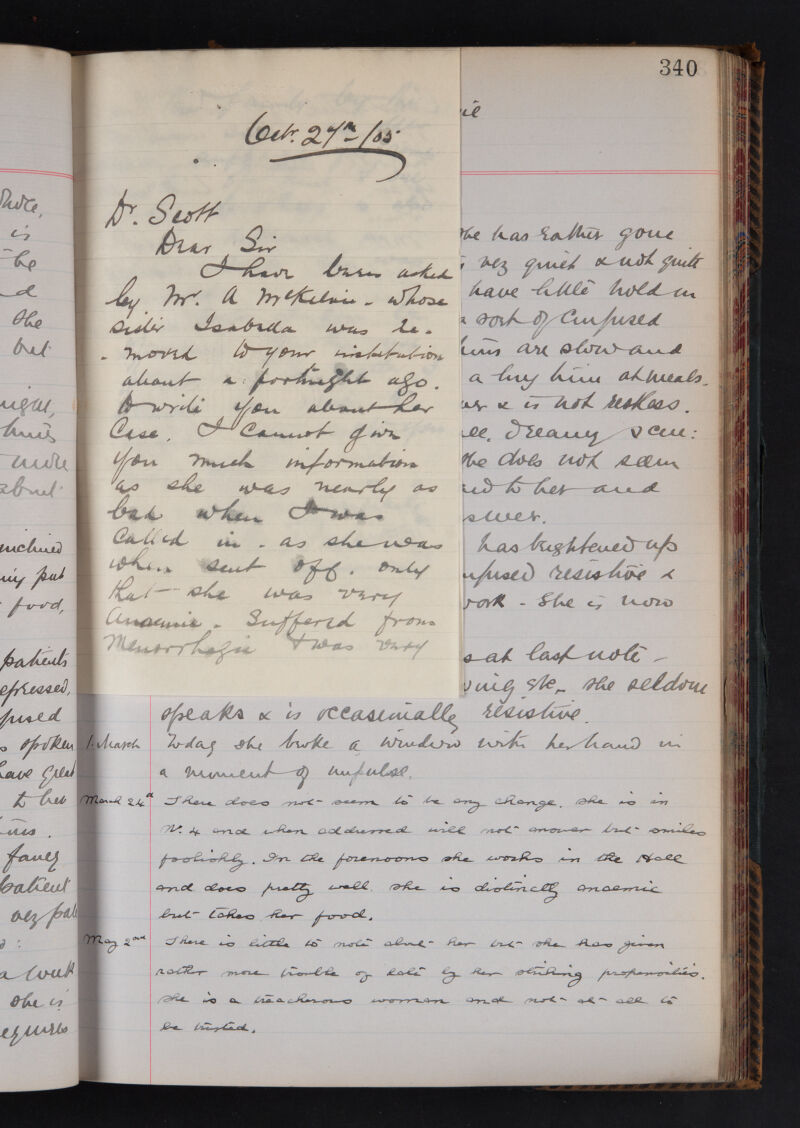 340
Octr. 27th /05
Dr. Scott
Dear Sir
I have been asked
by Mr. A McKelvie - whose
sister Isabella was re-
- moved to your institution
about a fortnight ago.
to write you about her
Case. I cannot give
you much information
as she was nearly as
bad when I was
Called in - as she was
when sent off. only
that she was very
Anaemic - Suffered from
Menorrhagia & was very
she has rather gone
very quiet & not quite
have little hold on
a sort of confused
are slow and
at meals.
& is not restless.
dreamy
she does not seem
to her and
has brightened up
confused resistive &
work - She is now
as at last note -
she seldom
speaks & is occasionally resistive.
1. March Today she broke a window with her hand in
a moment of impulse.
March 24th There does not seem to be any change. She is in
No. 4 and when addressed will not answer but smiles
foolishly. In the forenoons she works in the Hall
and does pretty well. She is distinctly anaemic
but takes her food.
May 2nd There is little to note about her but she has given
rather more trouble of late by her striking propensities.
She is a treacherous woman and not at all to
be trusted.
is
be
She
but
night,
more
about
inclined
put
food,
patients
depressed,
confused
spoken
have great
to her
fancy
patient
a week
she is
requires